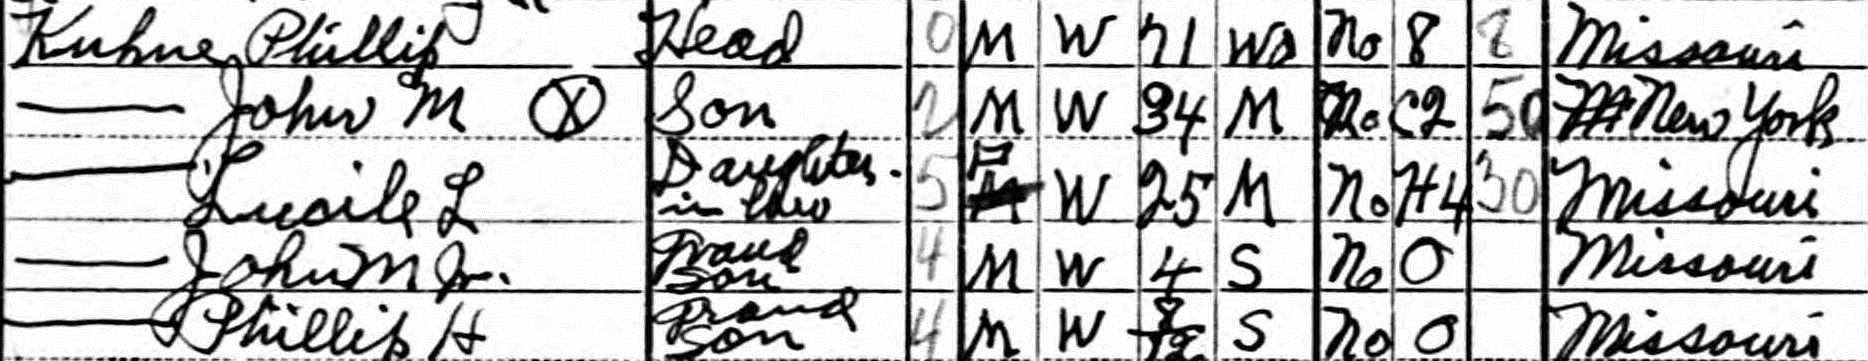 Kuhne, Phillip Head 0 M W 71 Wd No 8 8 Missouri
—— John M Ⓧ Son 2 M W 34 M No C2 50 New York
—— Lucile L Daughter-in law 5 F W 25 M No H4 30 Missouri
—— John M Jr. Grand Son 4 M W 4 S No 0 Missouri
—— Phillip H Grand Son 4 M W 8/12 S No 0 Missouri